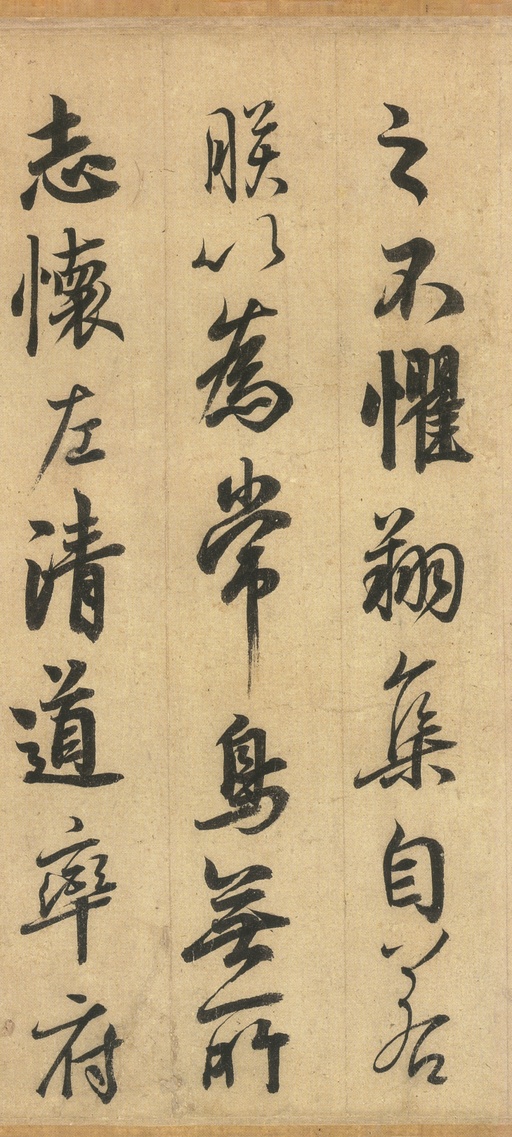 之不懼翔集自若
朕以為常鳥無所
志懷左清道率府